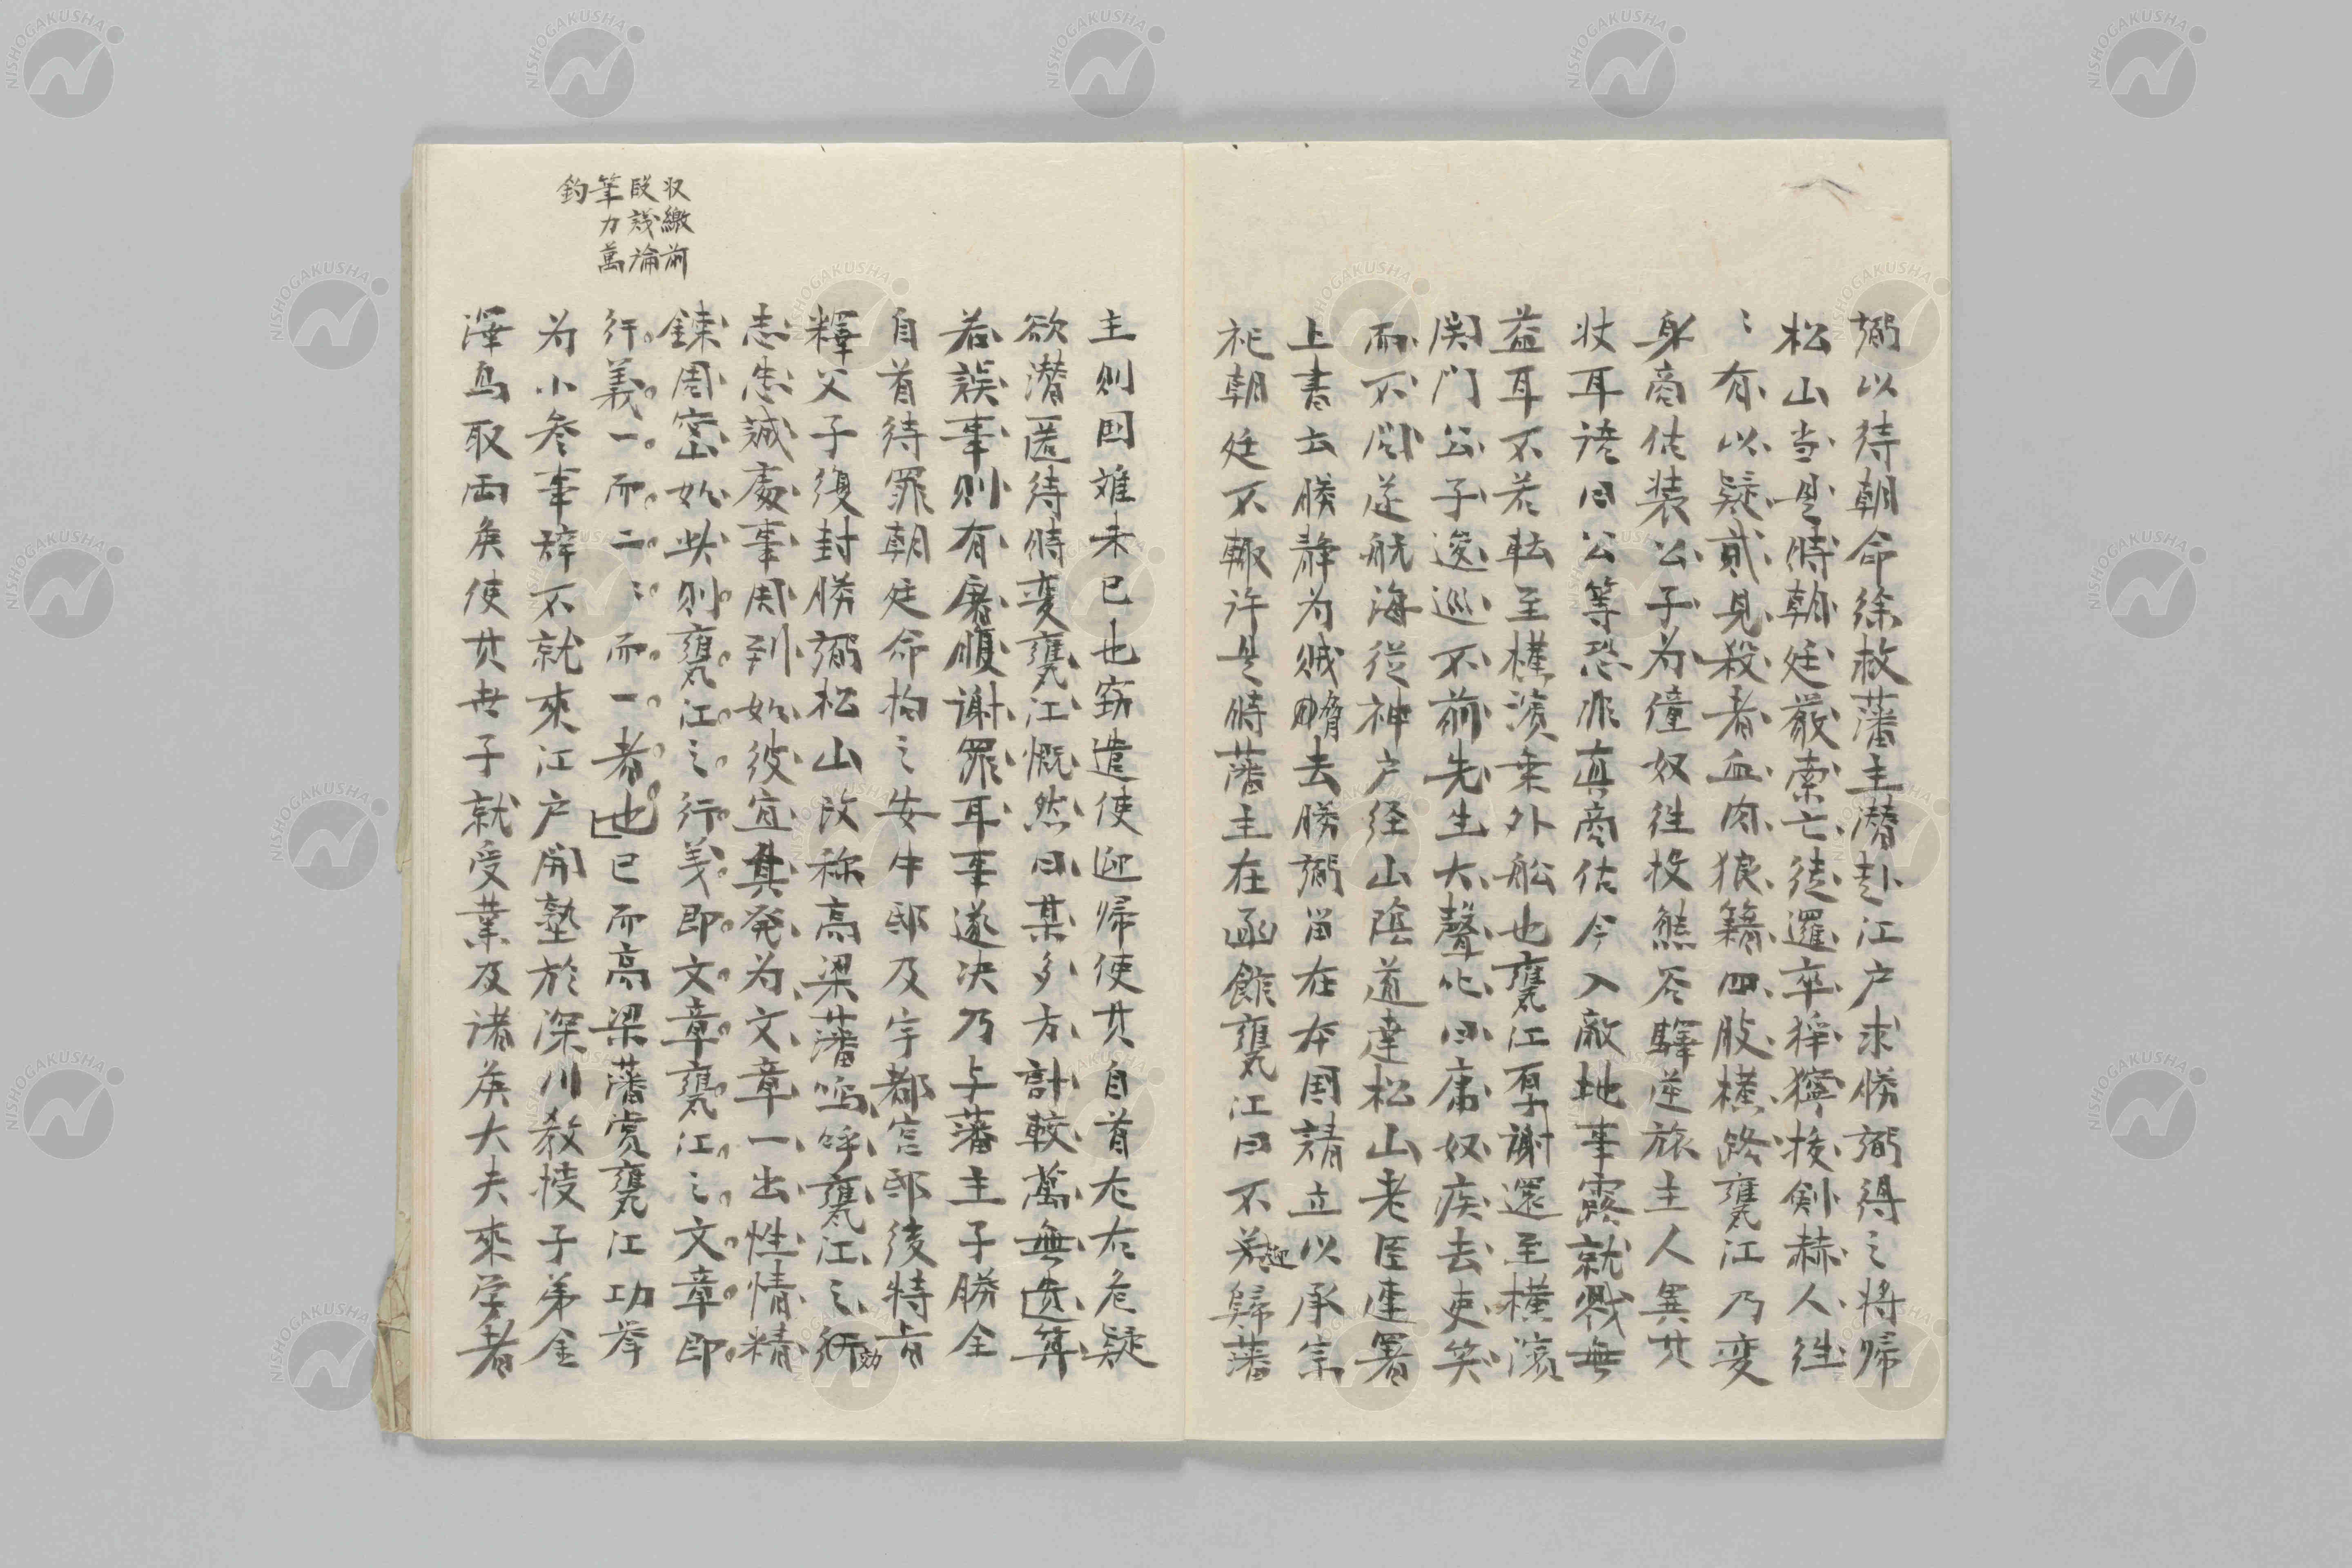 弼以待朝命徐救藩主潜赴江户求勝弼得之将帰
松山当是時朝廷嚴索亡徒邏卒狰獰按剣赫人徃
〻有以疑貳見殺者血肉狼籍四肢横路甕江乃変
身商估装公子为僮奴徃投熊谷驛逆旅主人異其
状耳语曰公等恐非真商估今入敵地事露就戮無
益耳不若転至横濱乗外舩也甕江厚謝還至横濱
関门公子逡巡不前先生大聲叱曰庸奴疾去吏笑
而不问遂航海従神户経山陰道達松山老臣連署
上書云勝静为賊脅去勝弼留在本国請立以承宗
祀朝廷不輙許是時藩主在函館甕江曰不若迎歸藩
主則国难未已也窃遣使迎帰使其自首左右危疑
欲潜匿待時変甕江慨然曰某多方計較萬無遗算
若誤事則有屠腹谢罪耳事遂决乃与藩主子勝全
自首待罪朝廷命拘之安中邸及宇都宮邸後特旨
釋父子復封勝弼松山改称高梁藩嗚呼甕江之行効
志忠誠處事周到如彼宜其発为文章一出性情精
錬周密如此則甕江之行義即文章甕江之文章即
行義一而二〻而一者也已而高梁藩賞甕江功挙
为小参事辞不就来江户開塾於深川教授子弟金
澤鳥取両矦使其世子就受業及诸矦大夫来学者
収繳前
段議論
筆力萬
鈞
NISHOGAKUSHA